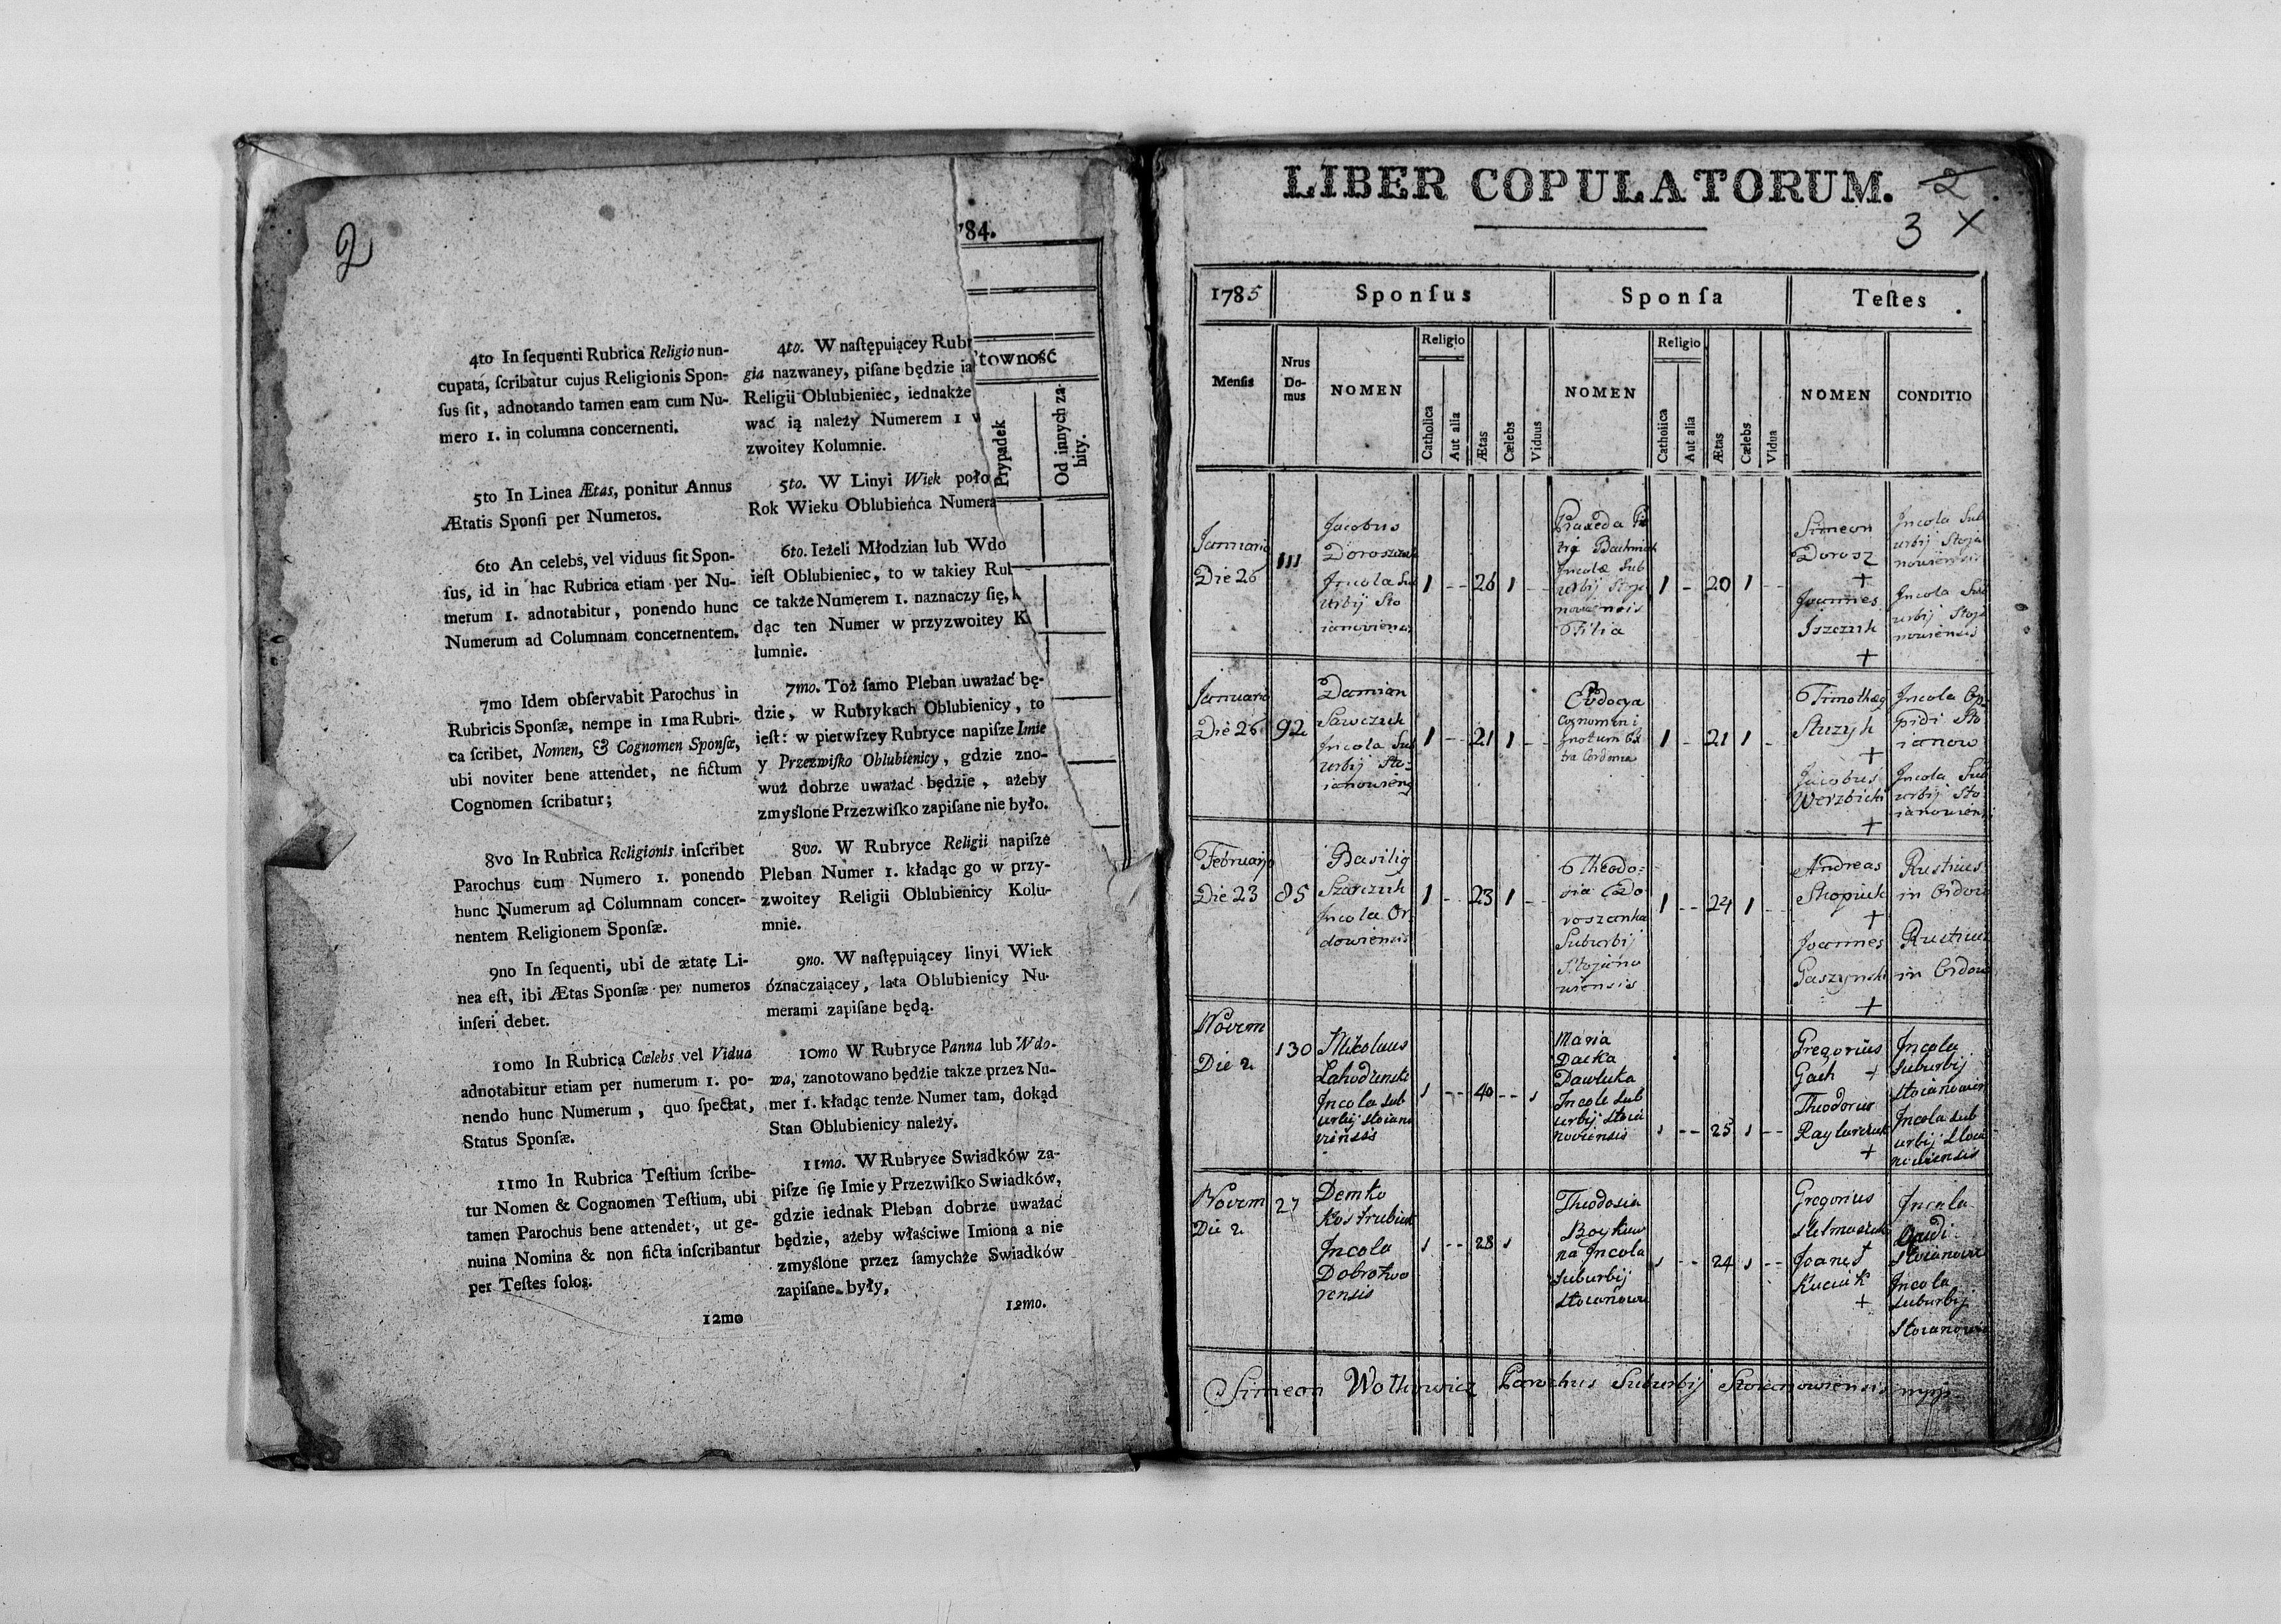 2
'84.
4to In ſequenti Rubrica Religio nun-
cupata, ſcribatur cujus Religionis Spon-
ſus ſit, adnotando tamen eam cum Nu-
mero 1. in columna concernenti.
5to In Linea Ætas, ponitur Annus
Ætatis Sponſi per Numeros.
6to An celebs, vel viduus ſit Spon-
ſus, id in hac Rubrica etiam per Nu-
merum 1. adnotabitur, ponendo hunc
Numerum ad Columnam concernentem.
7mo Idem obſervabit Parochus in
Rubricis Sponſæ, nempe in 1ma Rubri-
ca ſcribet, Nomen, & Cognomen Sponſæ,
ubi noviter bene attendet, ne fictum
Cognomen ſcribatur;
8vo In Rubrica Religionis inſcribet
Parochus cum Numero 1. ponendo
hunc Numerum ad Columnam concer-
nentem Religionem Sponſæ.
9no In ſequenti, ubi de ætate Li-
nea eſt, ibi Ætas Sponſæ per numeros
inſeri debet.
10mo In Rubrica Cœlebs vel Vidua
adnotabitur etiam per numerum 1. po-
nendo hunc Numerum, quo ſpectat,
Status Sponſæ.
11mo In Rubrica Teſtium ſcribe-
tur Nomen & Cognomen Teſtium, ubi
tamen Parochus bene attendet, ut ge-
nuina Nomina & non ficta inſcribantur
per Teſtes ſolos.
12mo
4to. W naſtępuiącey Rubr
gia nazwaney, piſane będzie ia
Religii Oblubieniec, iednakże
wać ią należy Numerem 1 w
zwoitey Kolumnie.
5to. W Linyi Wiek poło
Rok Wieku Oblubieńca Numera
6to. Ieżeli Młodzian lub Wdo
ieſt Oblubieniec, to w takiey Rul
ce także Numerem 1. naznaczy ſię,
dąc ten Numer w przyzwoitey K
lumnie.
7mo. Toż ſamo Pleban uważać bę-
dzie, w Rubrykach Oblubienicy, to
ieſt: w pierwſzey Rubryce napiſze Imie
y Przezwiſko Oblubienicy, gdzie zno-
wuż dobrze uważać będzie, ażeby
zmyślone Przezwiſko zapiſane nie było.
8vo. W Rubryce Religii napiſze
Pleban Numer 1. kładąc go w przy-
zwoitey Religii Oblubienicy Kolu-
mnie.
9no. W naſtępuiącey linyi Wiek
óznaczaiącey, lata Oblubienicy Nu-
merami zapiſane będą.
10mo W Rubryce Panna lub Wdo-
wa, zanotowano będzie takze przez Nu-
mer 1. kładąc tenże Numer tam, dokąd
Stan Oblubienicy należy.
11mo. W Rubryce Swiadków za-
piſze ſię Imie y Przezwiſko Swiadków,
gdzie iednak Pleban dobrze uważać
będzie, ażeby właściwe Imiona a nie
zmyślone przez ſamychże Swiadków
zapiſane były,
12mo.
towność
Prypadek
Od innych za-
bity.
LIBER COPULATORUM.
2
3 X
1785 Sponſus Sponſa Teſtes
Menſis
Nrus
Do-
mus
NOMEN
Religio
Catholica
Aut alia
Ætas
Cælebs
Viduus
NOMEN
Religio
Catholica
Aut alia
Ætas
Cælebs
Vidua
NOMEN
CONDITIO
Januarij
Die 26
111
Jacobus
Incola Sub
urbij Sto
ianoviensis
1 -- 26 1 --
Incolæ Sub
urbij Stoja
noviensis
Filia
1 - 20 1 --
Simeon
Dorosz
+
Joannes
Iszczuk
+
Incola Sub
urbij Stoja
nowiensis
Incola Sub
urbij Stoja
nowiensis
Januarij
Die 26
92
Damian
Sawczuk
Incola Sub
urbij Sto-
ianowiens
1 -- 21 1 --
Eudocya
Cognomen i
gnotum
1 - 21 1 -
Stuzyk
+
Jacobus
Werzbicki
+
Incola Op-
pidi Sto
ianow
Incola Sub
urbij Sto
ianowiensi
Februarij
Die 23
85
Basilig
Incola Or
dowiensis
1 -- 23 1 --
Theodo-
sia Do
roszanka
Suburbij
Stojano
wiensis
1 -- 24 1 --
Andreas
+
Joannes
Gaszynski
+
Rusticus
in Ordow
Rusticus
in Ordow
Novem
Die 2
130
Nikolaus
Incola Sub
urbij Stoiano
viensis
1 -- 40 -- 1
Maria
Incole Sub
urbij Stoia
noviensis
1 -- 25 1 --
Gregorius
Gach +
Theodorus
+
Incola
Suburbij
Stoianowien
Incola Sub
urbij Stoia
noviensis
Novem
Die 2
27
Demko
Kostrubiak
Incola
Dobrotwo
rensis
1 -- 28 1
Theodosia
Boykuw
na Incola
Suburbij
Stoianowi
1 -- 24 1 --
Gregorius
Joanes
Kuciak
+
Incola
Stoianowi
Incola
Suburbij
Stoianowi
Simeon Wolkowicz Parochus Suburbij Stoianowiensis mpp